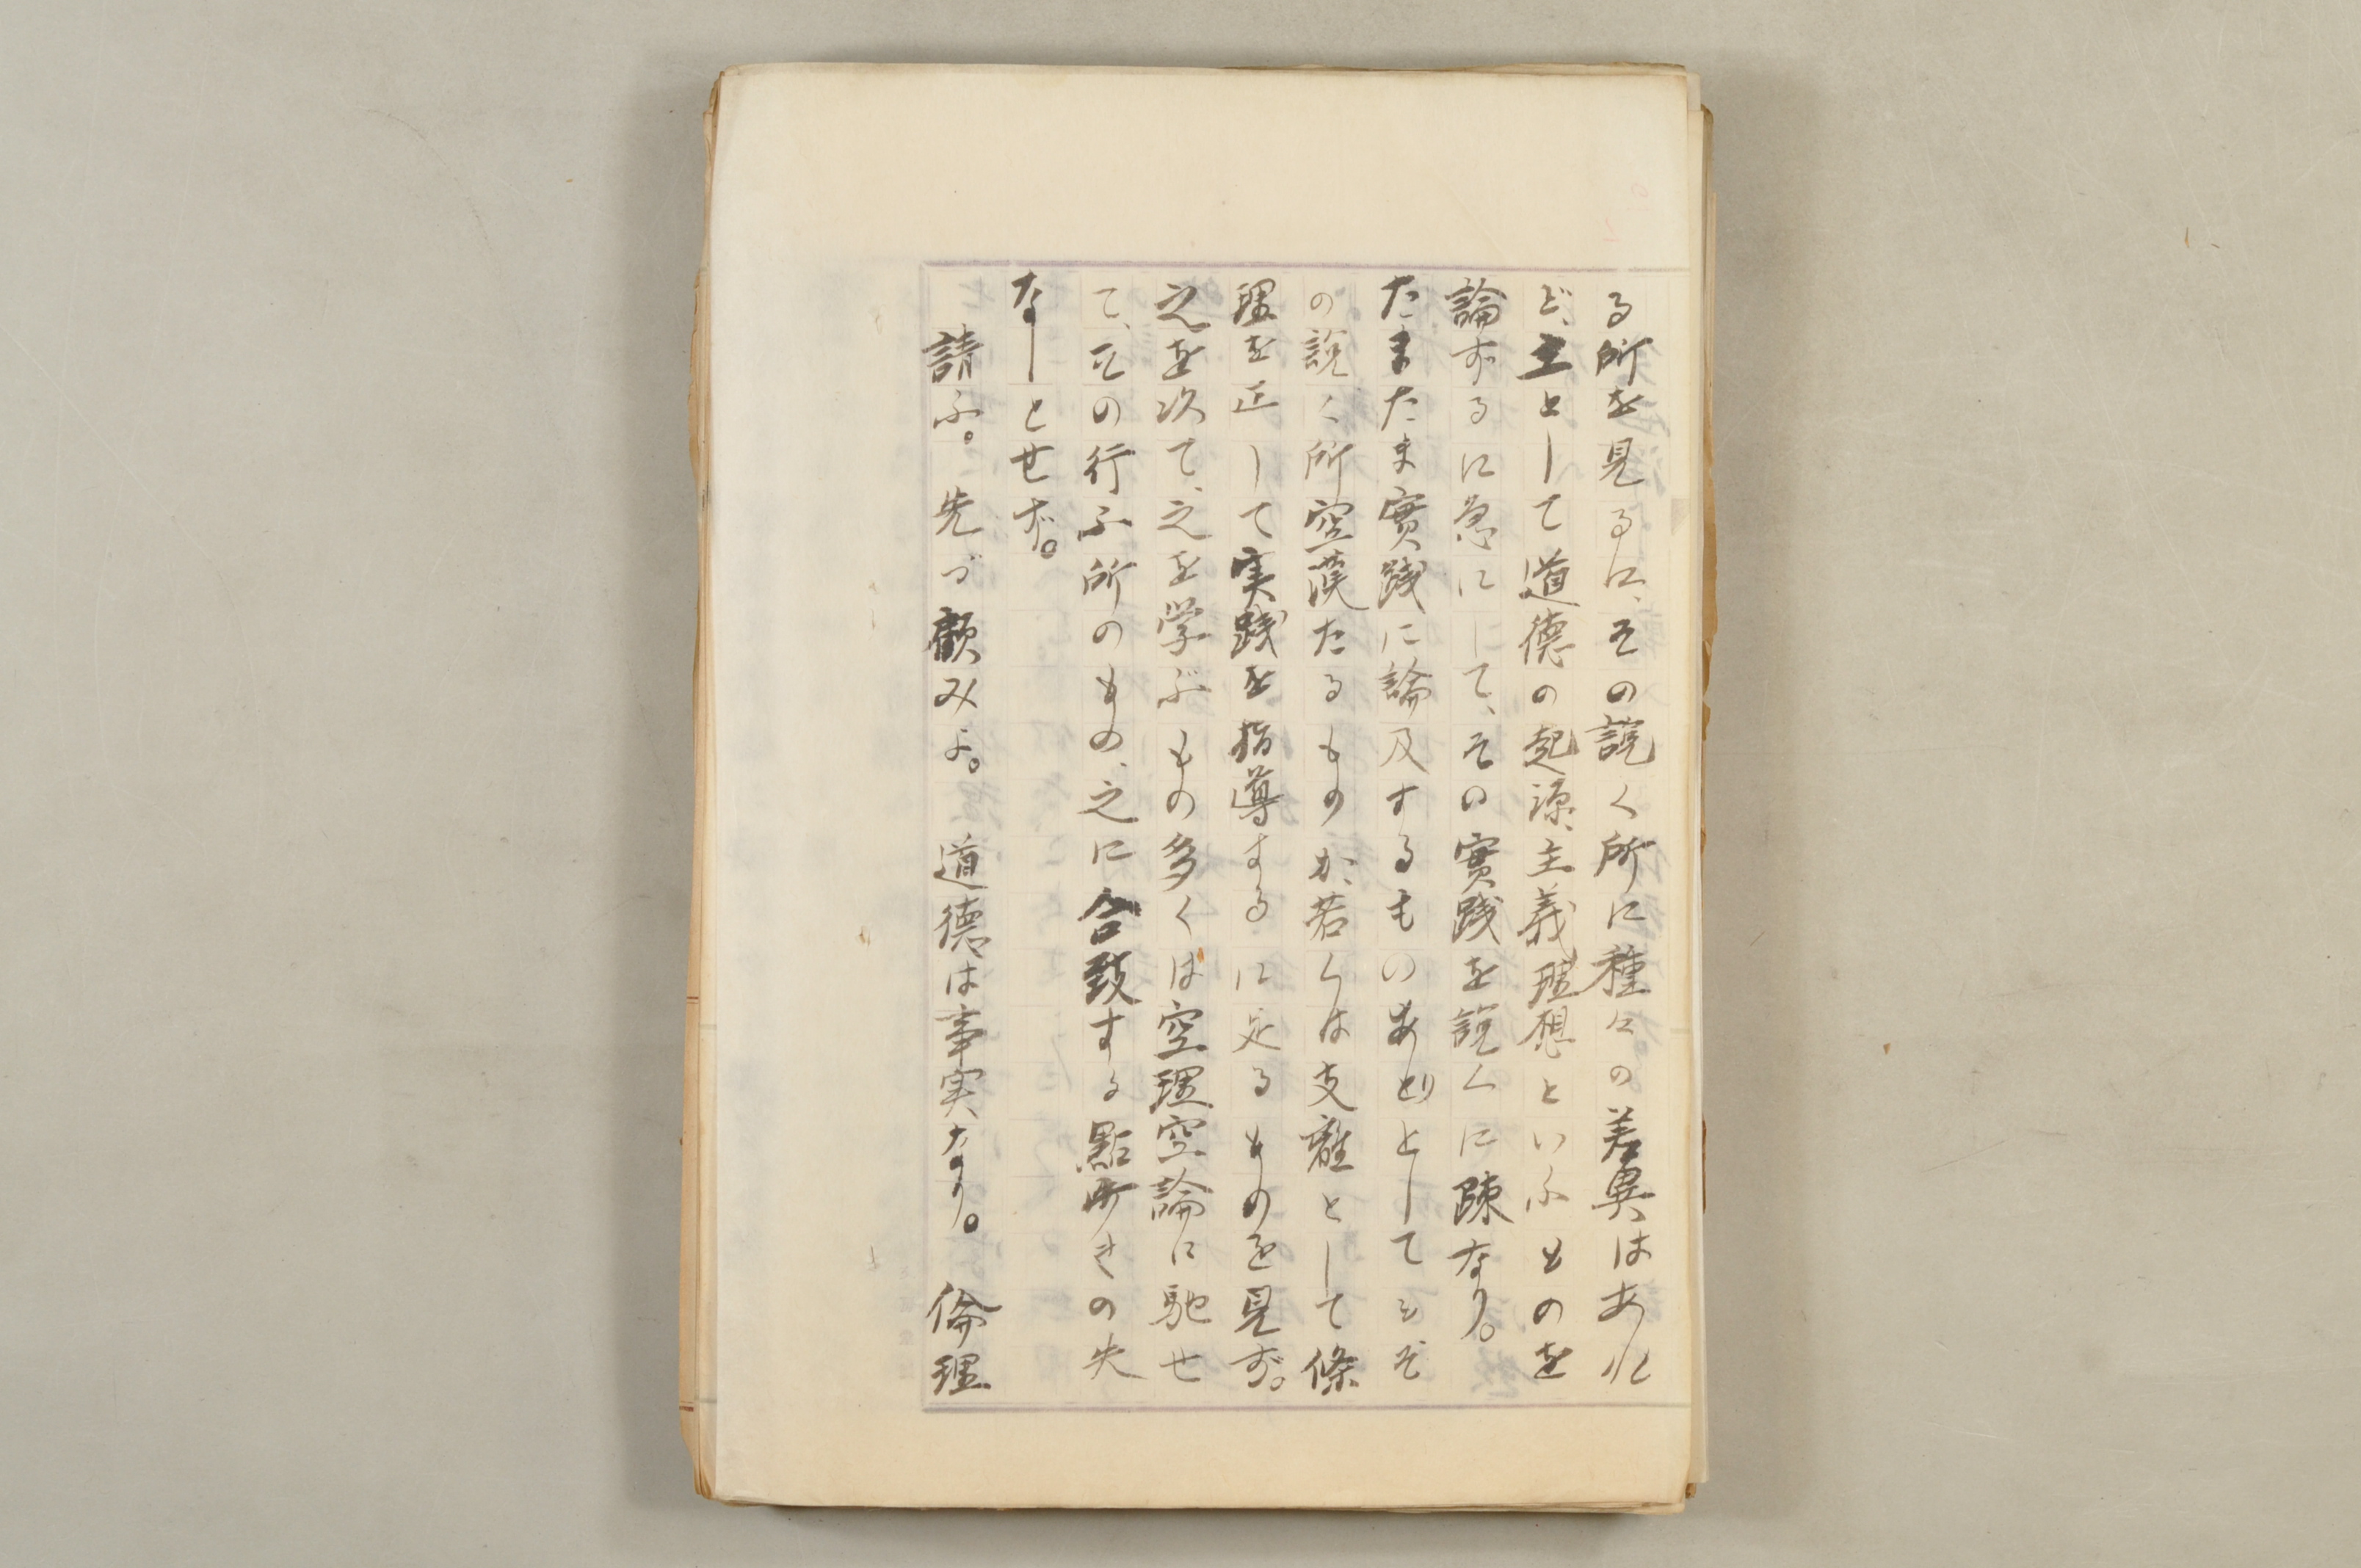 る所を見るに、その説く所に種々の差異はあれ
ど、主として道德の起源、主義理想といふものを
論ずるに急にして、その實践を説くに踈なり。
たまたま實践に論及するものありとしてもそ
の説く所空漠たるものか、若くは支離として條
理を正して実践を指導するに足るものを見ず。
之を次て、之を学ぶもの多くは空理空論に馳せ
て、その行ふ所のもの、之に合致する點所きの失
なしとせず。
請ふ。先づ顧みよ。道德は事実なり。倫理